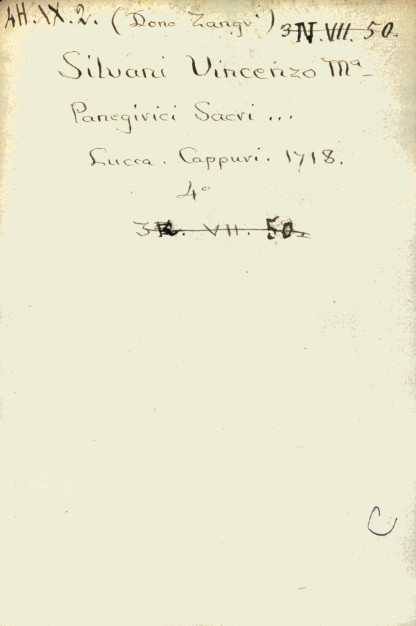 4H.IX.2. (Dono Zangri) 3N.VII.50.
Silvani Vincenzo Mª
Panegirici Sacri ...
Lucca. Cappuri. 1718.
4º
3 . VII. 50.
C